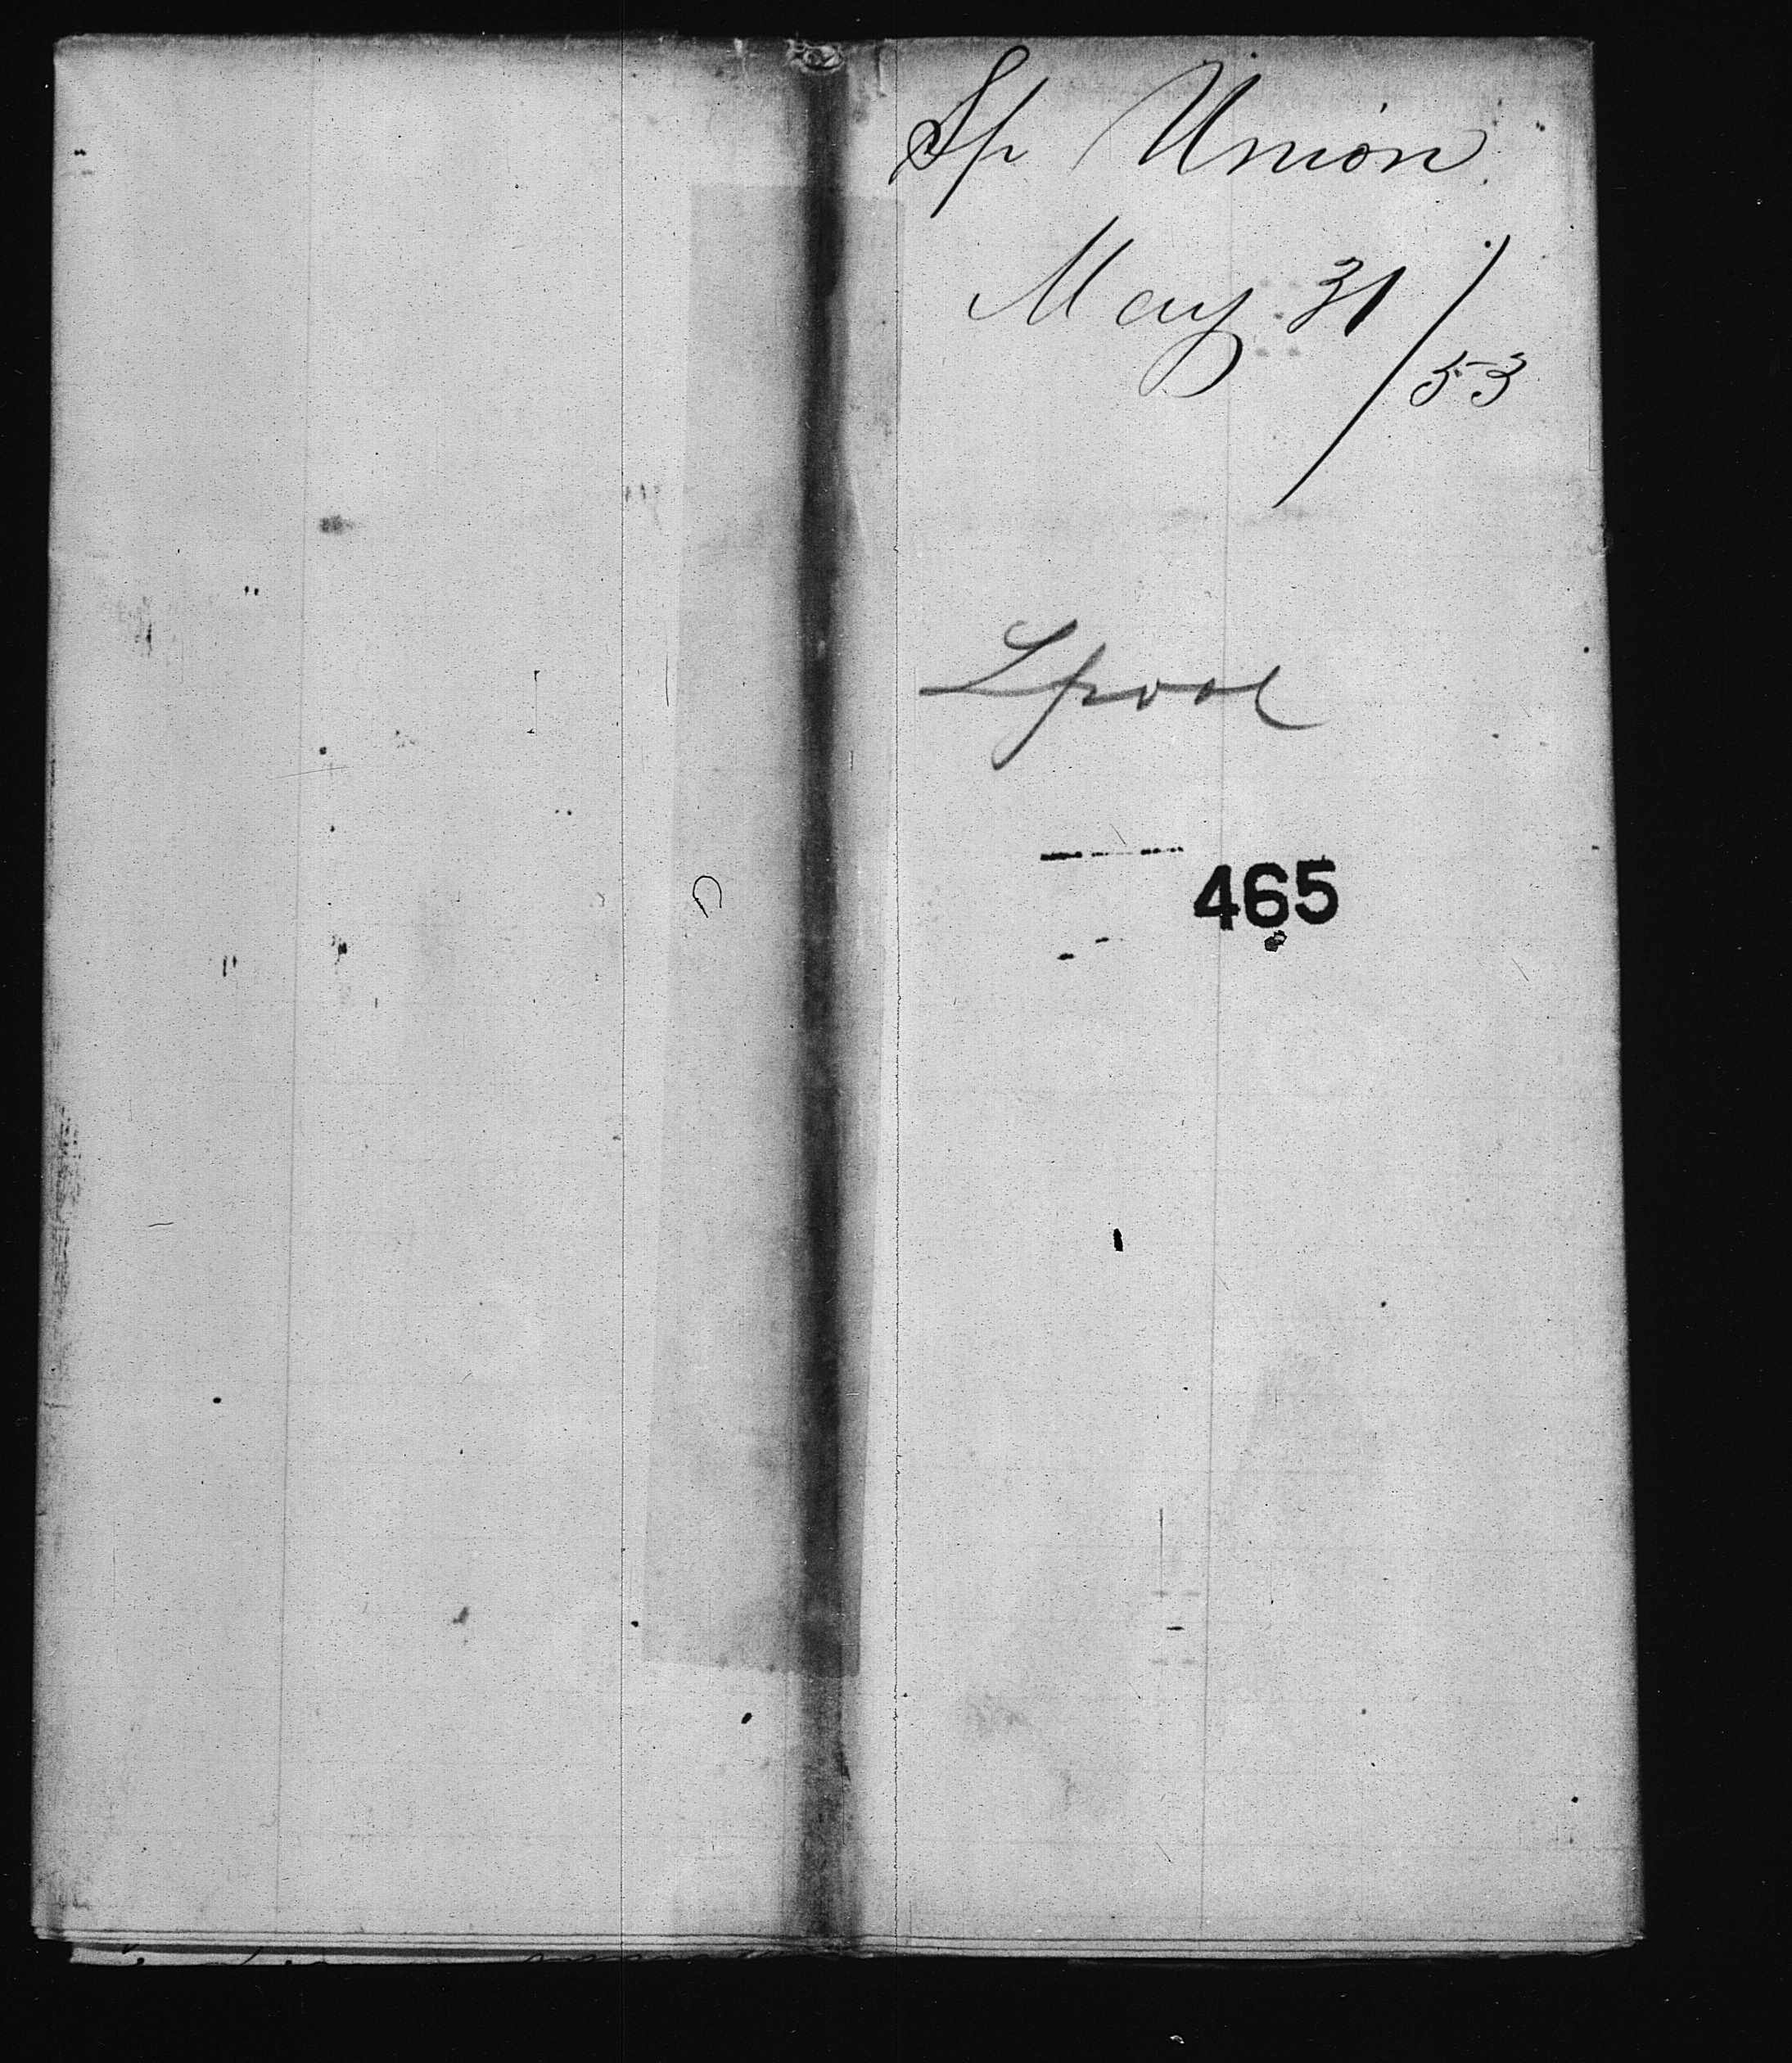 Sp Union
May 31/53
Lpool
465